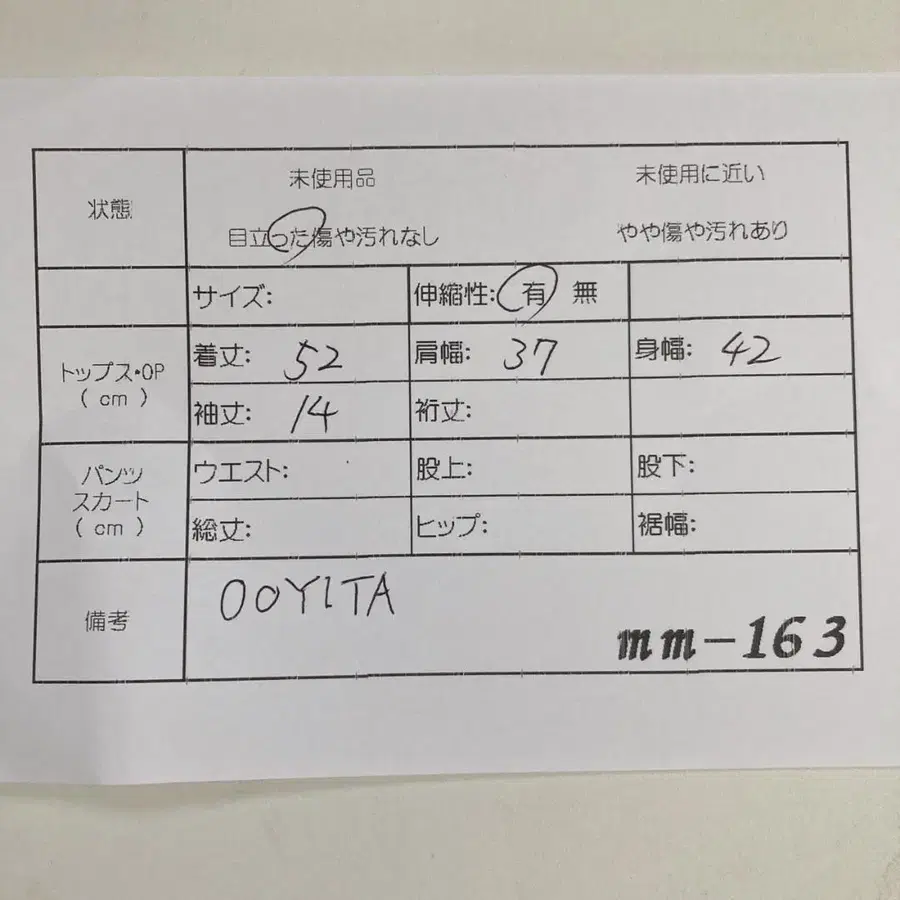 状態
未使用品 未使用に近い
目立った傷や汚れなし やや傷や汚れあり
サイズ: 伸縮性: 有 無
トップス・OP
( cm )
着丈: 52 肩幅: 37 身幅: 42
袖丈: 14 裄丈:
パンツ
スカート
( cm )
ウエスト: 股上: 股下:
総丈: ヒップ: 裾幅:
備考
OOYITA
mm-163